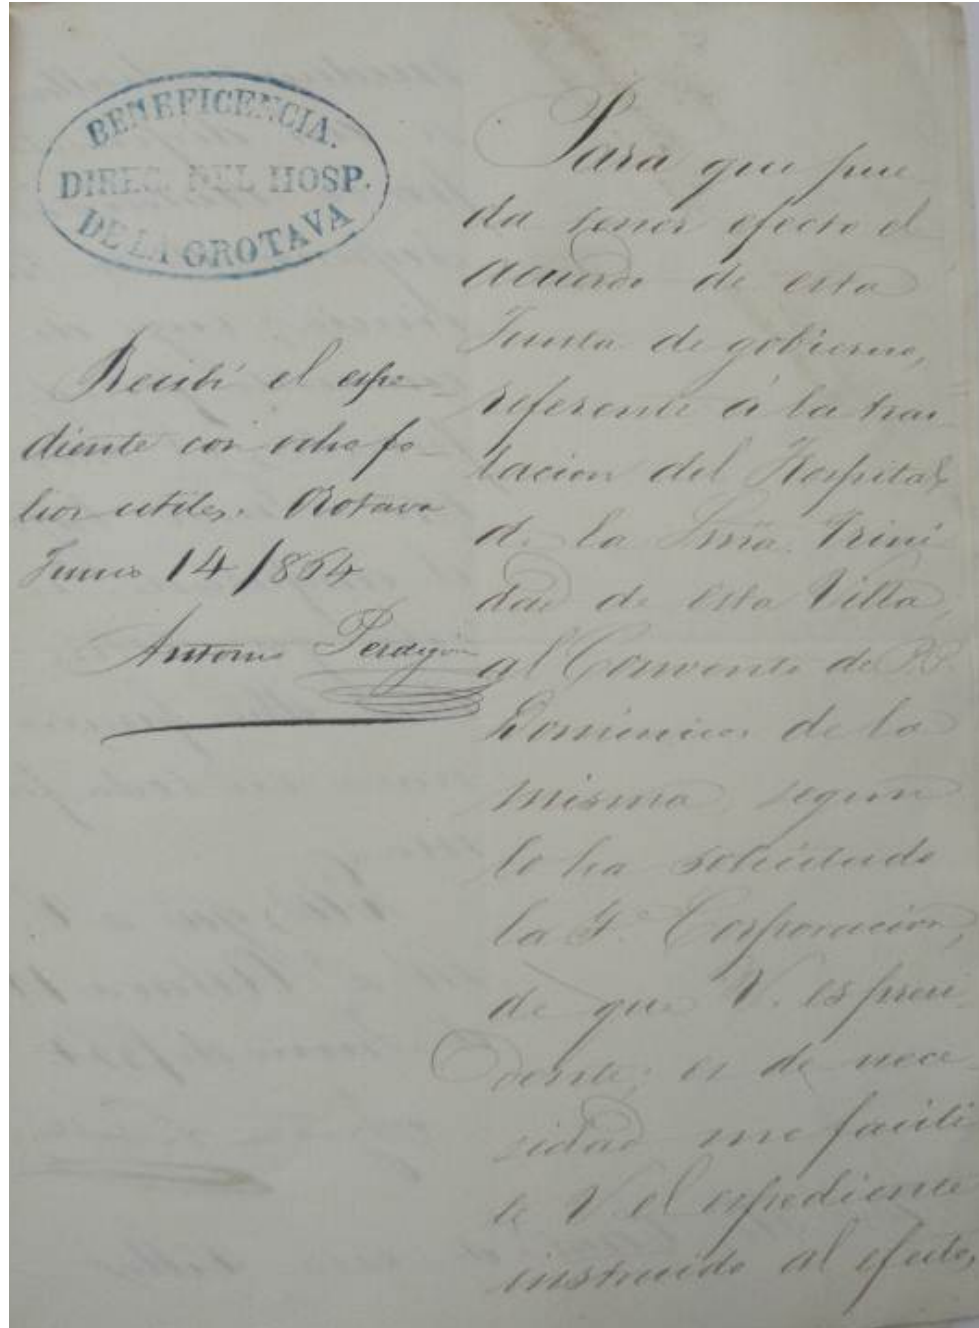 BENEFICENCIA.
DIREC. DEL HOSP.
DE LA OROTAVA
Recibí el espe-
diente con ocho fo-
lios utiles. Orotava
Junio 14/864
Antonio Perdigón
Para que pue-
da tener efecto el
acuerdo de esta
Junta de gobierno,
referente á la tras
lacion del Hospital
de la Sma. Trini
dad de esta Villa,
al Convento de P.P.
Dominicos de la
misma segun
lo ha solicitado
la Corporacion,
de que V. es presi
dente; es de nece
sidad me facili
te V el espediente
instruido al efecto,